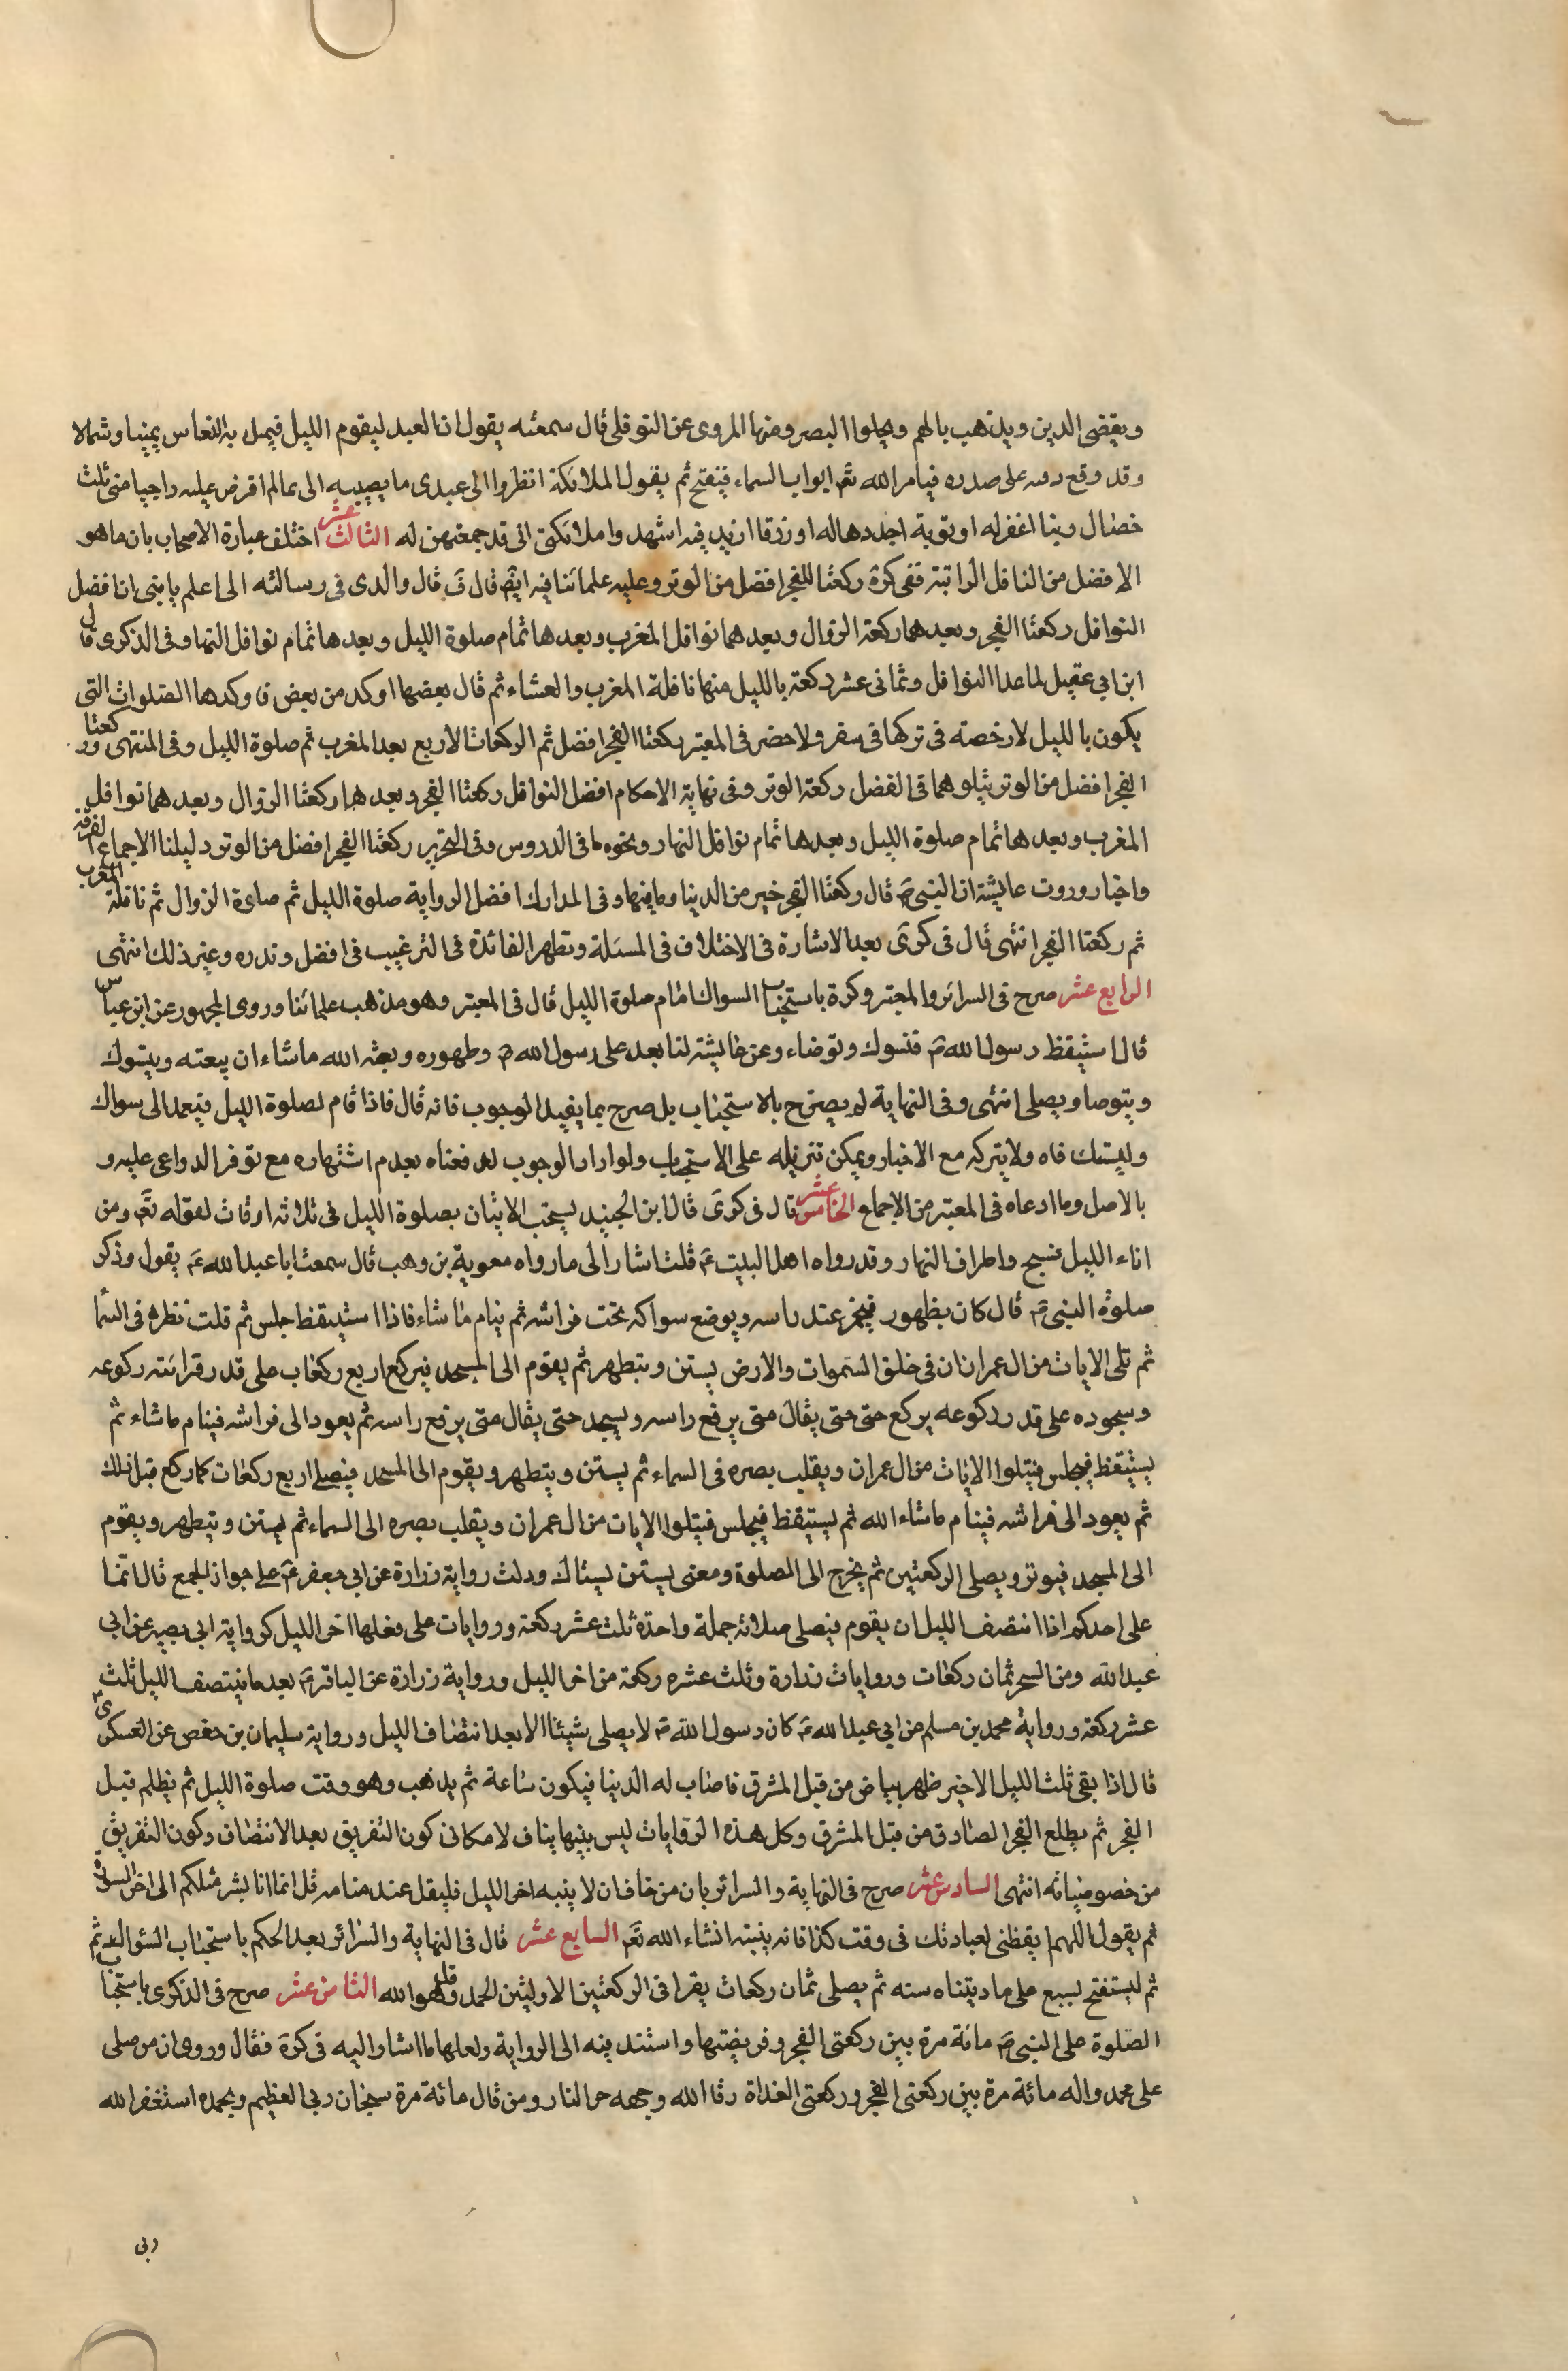 ويقضى الدين ويذهب بالهم ويجلوا البصر ومنها المروى عن النوفلى قال سمعته يقول ان العبد ليقوم الليل فيميل به النعاس يمينا وشمالا
وقد وقع دقنه على صدره فيامر الله تع ابواب السماء فينفتح ثم يقول الملائكة انظروا الى عبدى ما يصيبه الى بمالم افرض عليه راجيا منى ثلث
خصال ربنا اغفر له او توبة اجددها له او رزقا ازيد فيه اشهدوا ملائكتى انى قد جمعتهن له الثالث عشر اختلف عبارة الاصحاب بان ما هو
الافضل من النافل الراتبة ففى كرة ركعتا للفجر افضل من الوتر وعليه علمائنا فيه ايضم قال ق قال والدى فى رسالته الى اعلم يا بنى ان افضل
النوافل ركعتا الفجر وبعدهما ركعة الزوال وبعدهما نوافل المغرب وبعدها تمام صلوة الليل وبعدها تمام نوافل النها وفى الذكرى قال
ابن ابى عقيل لما عدا النوافل وثمانى عشر ركعة بالليل منها نافلة المغرب والعشاء ثم قال بعضها اوكد من بعض فاوكدها الصلوات التى
يكون بالليل لا رخصة فى تركها فى سفر ولا حضر فى المعتبر ركعتا الفجر افضل ثم الركعات الاربع بعد المغرب ثم صلوة الليل وفى المنتهى وركعتا
الفجر افضل من الوتر يتلوهما فى الفضل ركعة الوتر وفى نهاية الاحكام افضل النوافل ركعتا الفجر وبعدها ركعتا الزوال وبعدهما نوافل
المغرب وبعدها تمام صلوة الليل وبعدها تمام نوافل النهار ونحوه ما فى الدروس وفى التحرير ركعتا الفجر افضل من الوتر دليلنا الاجماع الفرقة
واخبار وروت عايشة ان النبى ص قال ركعتا الفجر خير من الدينا وما فيها وفى المدارك افضل الرواية صلوة الليل ثم صلوة الزوال ثم نافلة المغرب
ثم ركعتا الفجر انتهى قال فى كرى بعد الاشارة فى الاختلاف فى المسئلة وتظهر الفائدة فى الترغيب فى افضل ونذره وغير ذلك انتهى
الرابع عشر صرح فى السرائر والمعتبر وكرة باستحباب السواك امام صلوة الليل قال فى المعتبر وهو مذهب علمائنا وروى الجمهور عن ابن عباس
قال استيقظ رسول الله ص فتسوك وتوضاء وعن عايشة لنا بعد على رسول الله ص وطهوره وبعثه الله ماشاء ان يبعثه ويتسوك
ويتوصا ويصلى انتهى وفى النهاية لم يصرح بالاستحباب بل صرح بما يفيد الوجوب فانه قال فاذا قام لصلوة الليل فيعمد الى سواك
وليستك فاه ولا يتركه مع الاخبار ويمكن تنزيله على الاستحباب ولو اراد الوجوب لدفعناه بعدم اشتهاره مع توفر الدواعى عليه و
بالاصل وما ادعاه فى المعتبر من الاجماع الخامس عشر قال فى كرى قال ابن الجنيد يستحب الاتيان بصلوة الليل فى ثلاثه اوقات لقوله تع ومن
اناء الليل فسبح واطراف النهار وقد رواه اهل البيت ع قلت اشار الى ما رواه معوية بن وهب قال سمعت ابا عبد الله ع يقول وذكر
صلوة النبى ص قال كان بطهور فيخمر عند راسه ويوضع سواكه تحت فراشه ثم ينام ما شاء فاذا استيقظ جلس ثم قلت نظره فى السما
ثم تلى الايات من ال عمران ان فى خلق السموات والارض يستن ويتطهر ثم يقوم الى المسجد فيركع اربع ركعات على قدر قرائته ركوعه
وسجوده على قدر ركوعه يركع حتى حتى يقال متى يرفع راسه ويسجد حتى يقال متى يرفع راسه ثم يعود الى فراشه فينام ما شاء ثم
يستيقظ فيجلس فيتلوا الايات من ال عمران ويقلب بصره فى السماء ثم يستن ويتطهر ويقوم الى المسجد فيصلى اربع ركعات كما ركع قبل ذلك
ثم يعود الى فراشه فينام ما شاء الله ثم يستيقظ فيجلس فيتلوا الايات من ال عمران ويقلب بصره الى السماء ثم يستن ويتطهر ويقوم
الى المسجد فيوتر ويصلى الركعتين ثم يخرج الى الصلوة ومعنى يستن يستاك ودلت رواية زرارة عن ابى جعفر ع على جواز الجمع قال انما
على احدكم اذا انتصف الليل ان يقوم فيصلى صلاته جملة واحدة ثلث عشر ركعة وروايات على فعلها اخر الليل كرواية ابى بصير عن ابى
عبد الله ومن السحر ثمان ركعات وروايات زرارة وثلث عشره ركعة من اخر الليل ورواية زرارة عن الباقر ع بعد ما ينتصف الليل ثلث
عشر ركعة ورواية محمد بن مسلم من ابى عبد الله ع كان رسول الله ص لا يصلى شيئا الا بعد انتصاف الليل ورواية سليمان بن حفص عن العسكرى
قال اذا بقى ثلث الليل الاخير ظهر بياض من قبل المشرق فاضاب له الدينا فيكون ساعة ثم يذهب وهو وقت صلوة الليل ثم يظلم قبل
الفجر ثم يطلع الفجر الصادق من قبل المشرق وكل هذه الروايات ليس بينها يناف لامكانى كون التفريق بعد الانتصاف وكون التفريق
من خصوصياته انتهى السادس عشر صرح فى النهاية والسرائر بان من خاف ان لا ينبه اخر الليل فليقل عند منامه قل انما انا بشر مثلكم الى اخر السورة
ثم يقول اللهم ايقظنى لعبادتك فى وقت كذا فانه ينبته انشاء الله تع السابع عشر قال فى النهاية والسرائر بعد الحكم باستحباب السئوال ثم
ثم ليستفتح لسبع على ما ديتناه سنه ثم يصلى ثمان ركعات يقرا فى الركعتين الاوليتين الحمد وقل هو الله الثامن عشر صرح فى الذكرى باستحباب
الصلوة على النبى ص مائة مرة بين ركعتى الفجر وفريضتها واستند فيه الى الرواية ولعلها ما اشار اليه فى كرة فقال وروى ان من صلى
على محمد واله مائة مرة بين ركعتى الفجر وركعتى الغداة رقا الله وجهه حر النار ومن قال مائة مرة سبحان ربى العظيم وبحمده استغفر الله
ربى